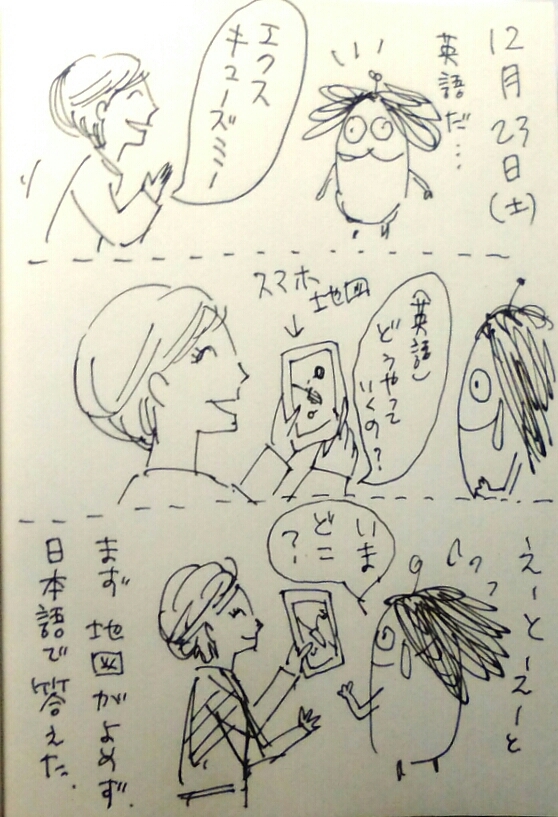 12月23日(土)
英語だ…
エクス
キューズミー
(英語)
どうやって
いくの?
スマホ
地図
えーとえーと
いま
どこ
?
まず 地図がよめず
日本語で答えた.